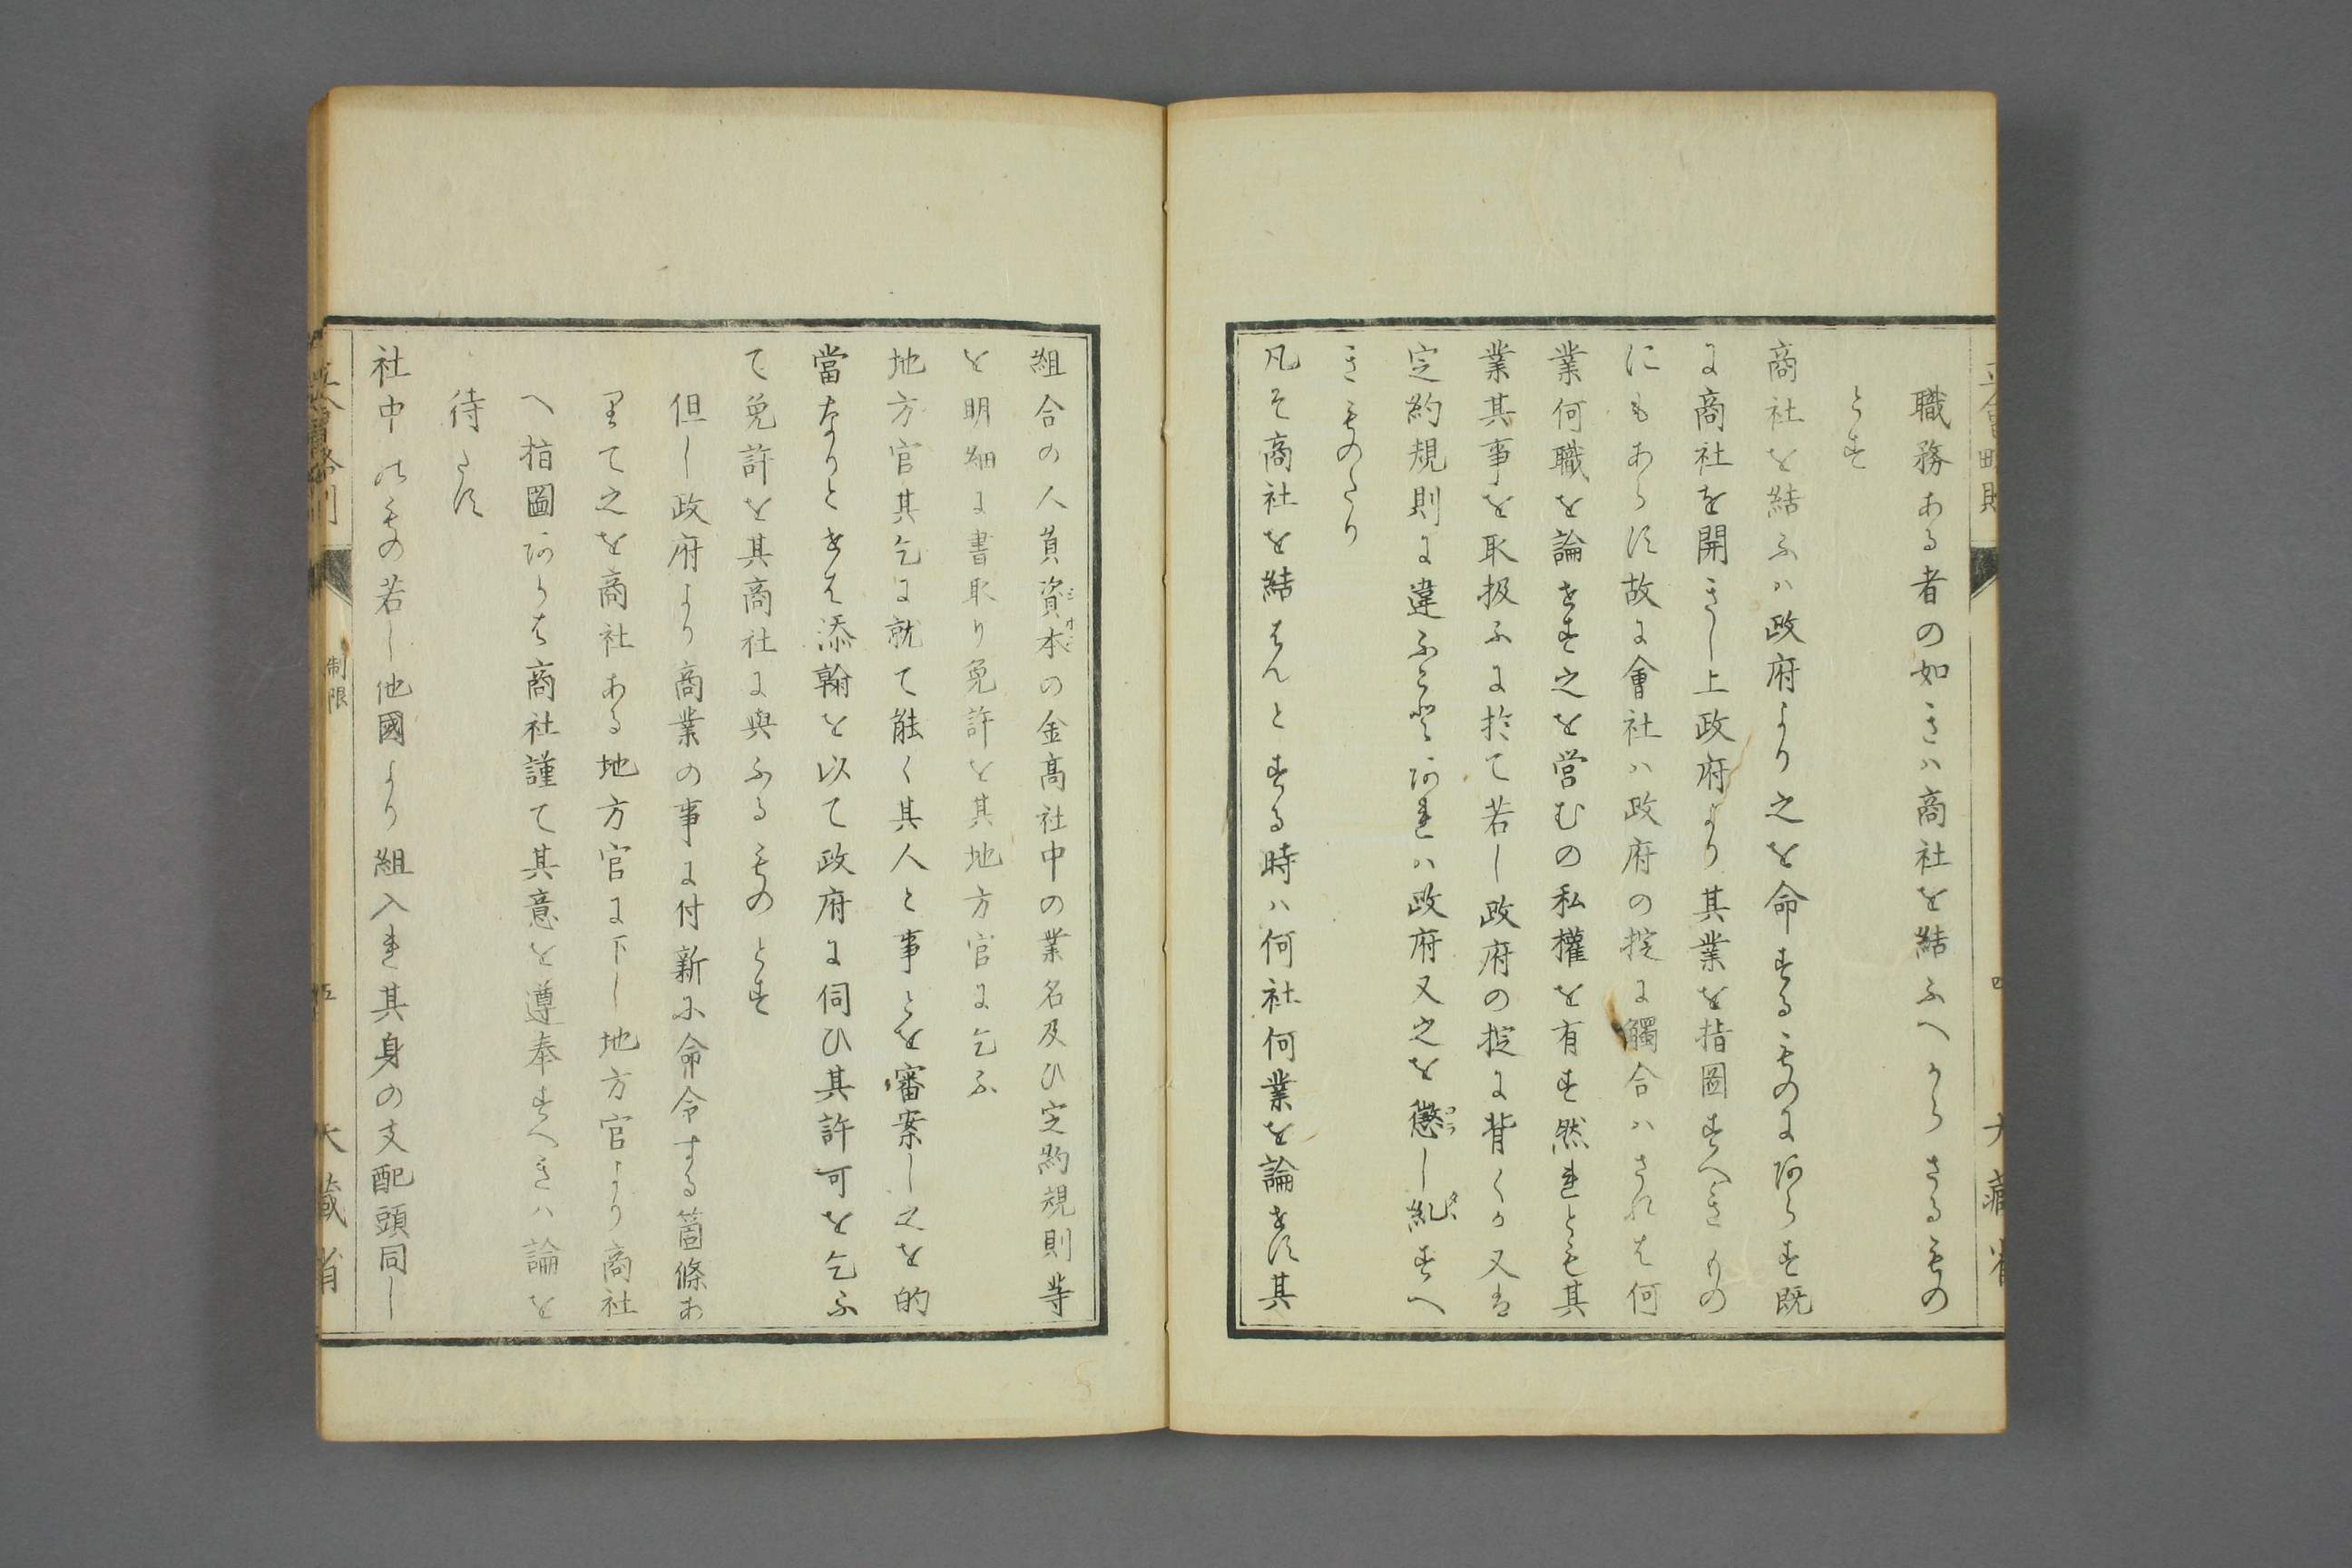 職務ある者の如きハ商社を結ふへからさるもの
とす
商社を結ふハ政府より之を命するものにあらす既
に商社を開きし上政府より其業を指圖すへきもの
にもあらす故に會社ハ政府の掟に觸合ハされは何
業何職を論せす之を営むの私權を有す然れとも其
業其事を取扱ふに於て若し政府の掟に背くか又は
定約規則に違ふことあれハ政府又之を懲し糺すへ
きものたり
凡そ商社を結はんとする時ハ何社何業を論せす其
組合の人員資本の金高社中の業名及ひ定約規則等
を明細に書取り免許を其地方官に乞ふ
地方官其乞に就て能く其人と事とを審案し之を的
當なりとせは添翰を以て政府に伺ひ其許可を乞ふ
て免許を其商社に與ふるものとす
但し政府より商業の事に付新に命令する箇條あ
りて之を商社ある地方官に下し地方官より商社
へ指圖あらは商社謹て其意を遵奉すへきハ論を
待たす
社中のもの若し他國より組入れ其身の支配頭同し
立會略則
制限
五
大藏省
四
大藏省